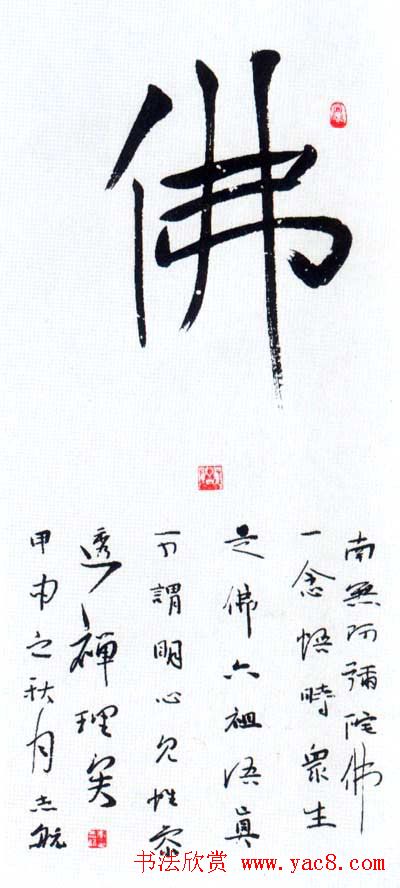 佛
南無阿彌陀佛
一念悟時眾生
是佛六祖語真
可謂明心見性參
透禪理矣
甲申之秋月志航
书法欣赏 www.yac8.com